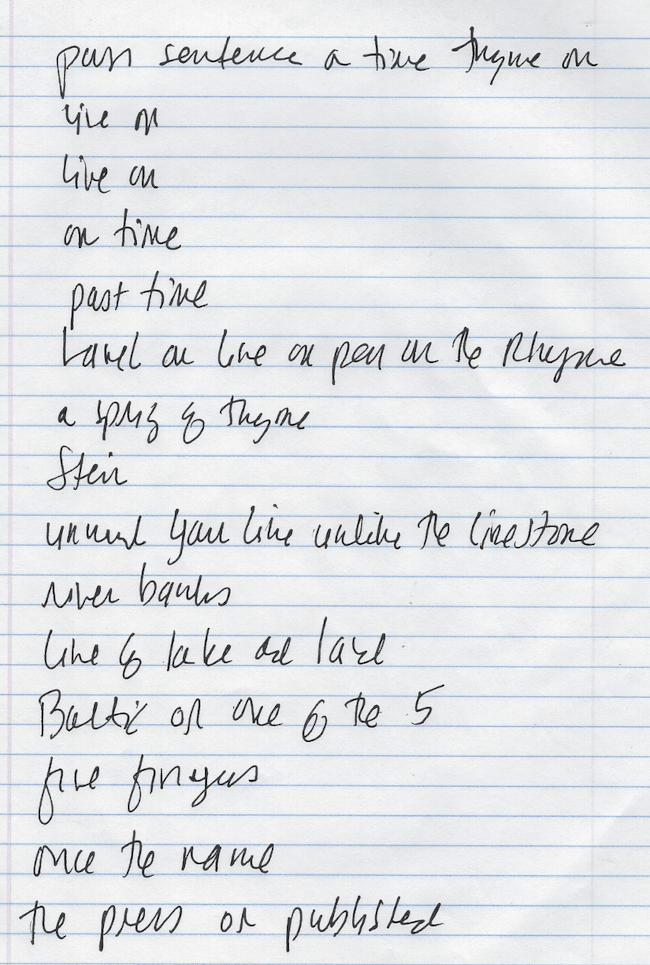 pass sentence a time thyme on
line on
live on
on time
past time
Land on line on pen on the Rhyme
a sprig of thyme
Stein
unwind your line unlike the limestone
river banks
line of lake and land
Baltic or one of the 5
five fingers
once the name
the press or published